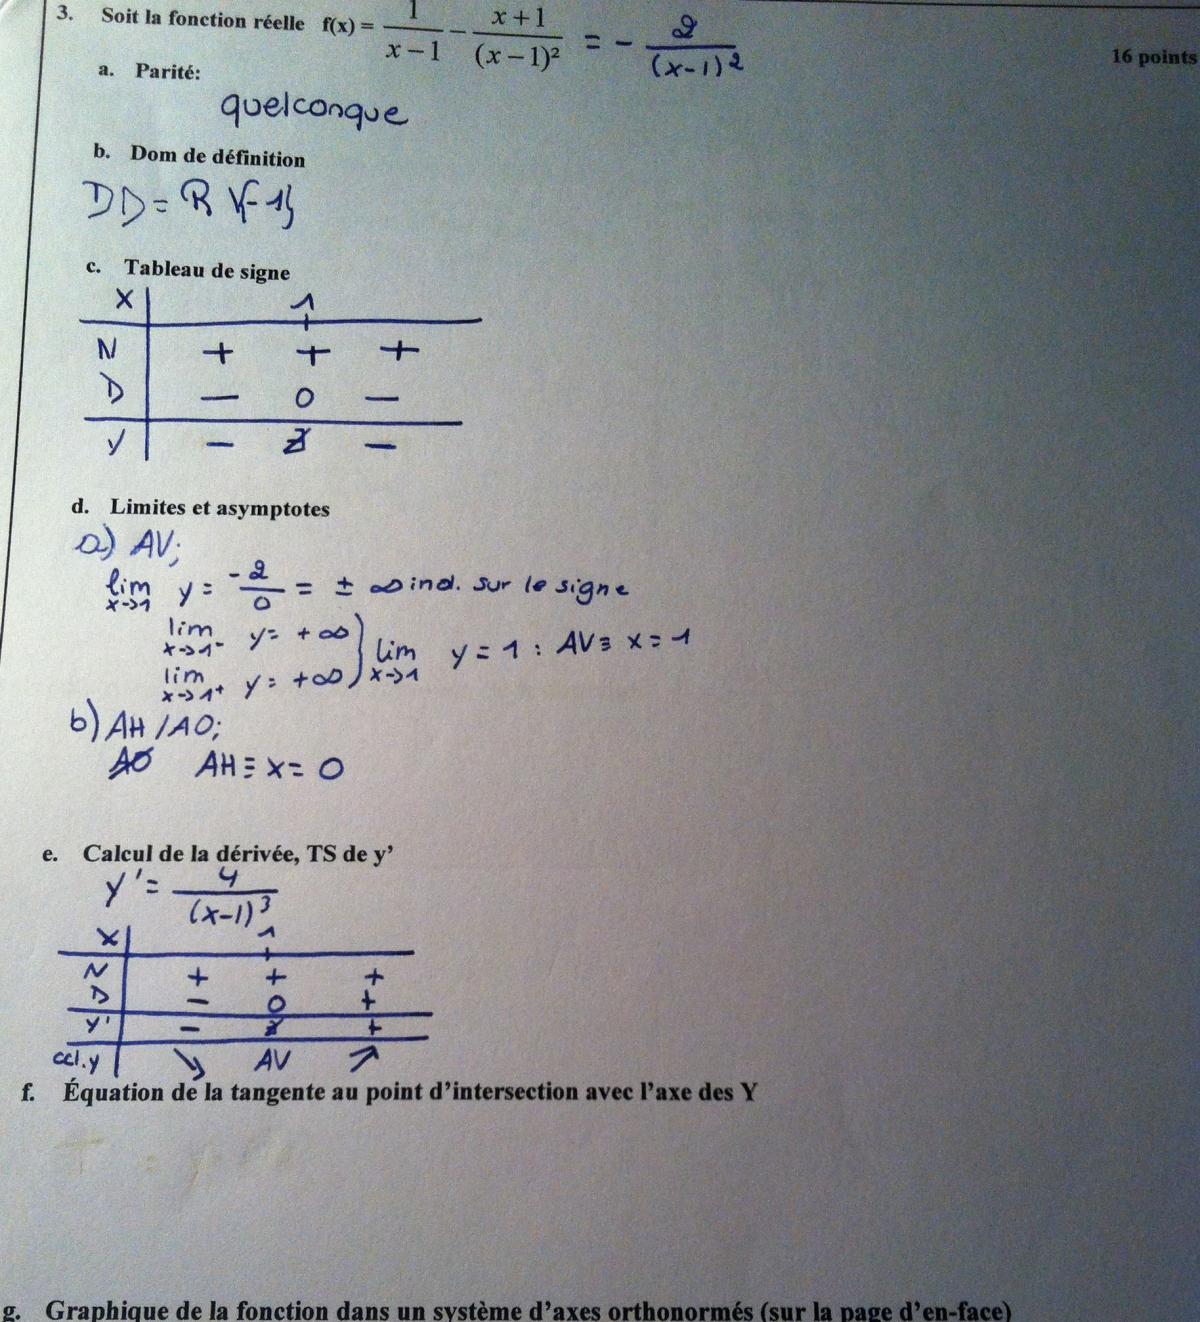 3. Soit la fonction réelle f(x) = 1/(x − 1) − (x + 1)/(x − 1)² = − 2/(x-1)²
16 points
a. Parité:
quelconque
b. Dom de définition
DD = R \{-1}
c. Tableau de signe
X 1
N + + +
D — 0 —
Y — Ƶ —
d. Limites et asymptotes
a) AV;
lim x->1 y = -2/0 = ± ∞ ind. sur le signe
lim x->1⁻ y = +∞
lim x->1⁺ y = +∞ } lim x->1 y = 1 : AV ≡ x = 1
b) AH /AO;
AO AH ≡ x = 0
e. Calcul de la dérivée, TS de y'
y' = 4/(x-1)³
X 1
N + + +
D — 0 +
Y' — Ƶ +
ccl.y ↘ AV ↗
f. Équation de la tangente au point d'intersection avec l'axe des Y
g. Graphique de la fonction dans un système d'axes orthonormés (sur la page d'en-face)